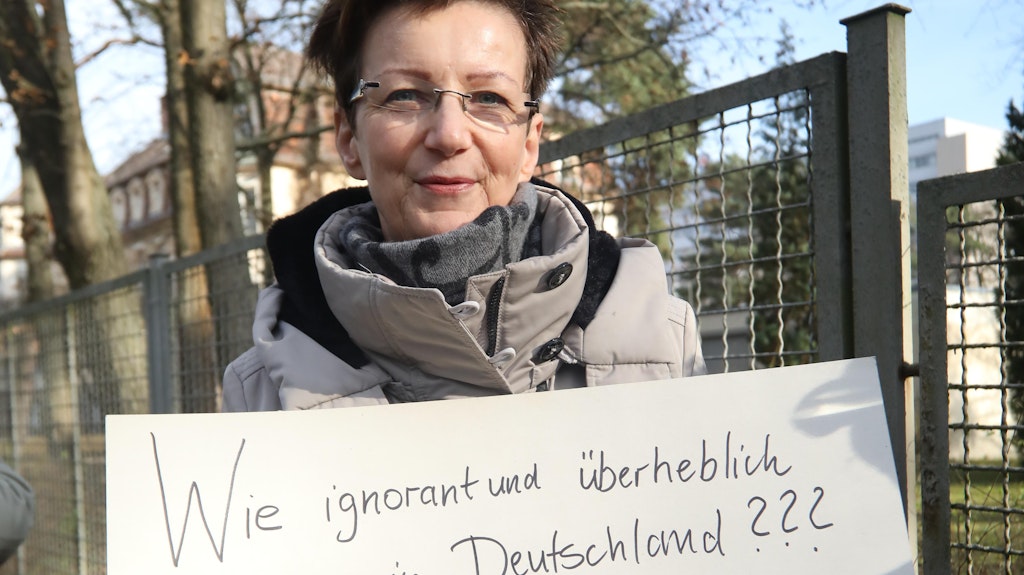 Wie ignorant und überheblich
in Deutschland ???